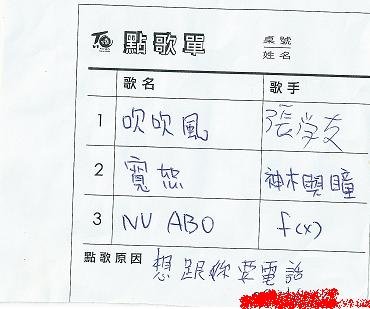 點歌單
桌號
姓名
歌名 歌手
1 吹吹風 張学友
2 寬恕 神木與瞳
3 NU ABO f(x)
點歌原因 想跟妳要電話